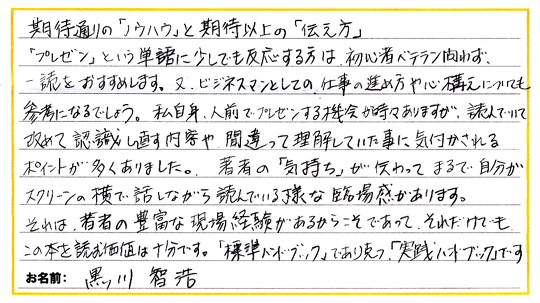 期待通りの「ノウハウ」と期待以上の「伝え方」
「プレゼン」という単語に少しでも反応する方は、初心者ベテラン問わず、
一読をおすすめします。又、ビジネスマンとしての、仕事の進め方や心構えについても
参考になるでしょう。私自身、人前でプレゼンする機会が時々ありますが、読んでいて
改めて認識し直す内容や、間違って理解していた事に気付かされる
ポイントが多くありました。著者の「気持ち」が伝わってまるで自分が
スクリーンの横で話しながら読んでいる様な臨場感があります。
それは、著者の豊富な現場経験があるからこそであって、それだけでも
この本を読む価値は十分です。「標準ハンドブック」であり克つ、「実践ハンドブック」です
お名前: 黒川 智浩